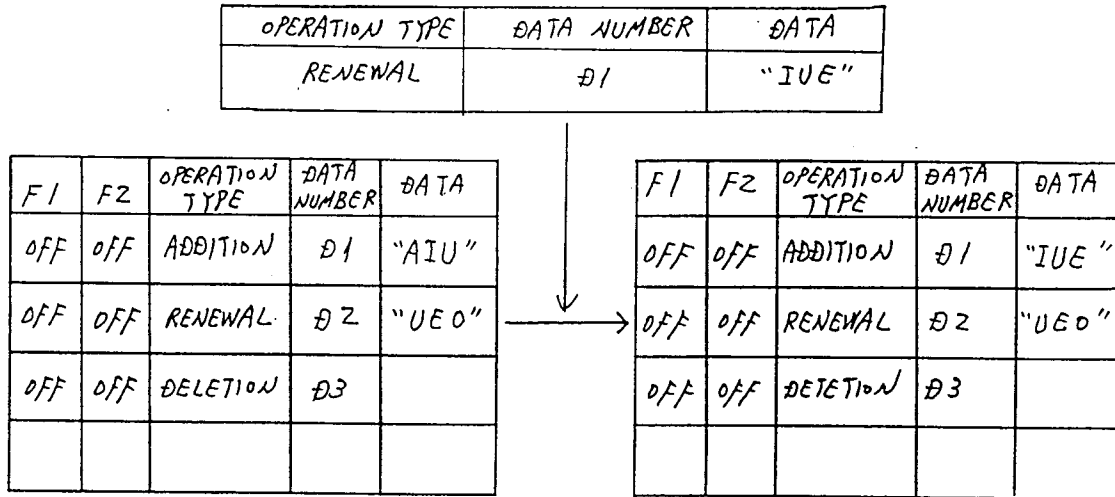 OPERATION TYPE DATA NUMBER DATA
RENEWAL D1 "IUE"
F1 F2 OPERATION TYPE DATA NUMBER DATA
OFF OFF ADDITION D1 "AIU"
OFF OFF RENEWAL D2 "UEO"
OFF OFF DELETION D3
F1 F2 OPERATION TYPE DATA NUMBER DATA
OFF OFF ADDITION D1 "IUE"
OFF OFF RENEWAL D2 "UEO"
OFF OFF DETETION D3